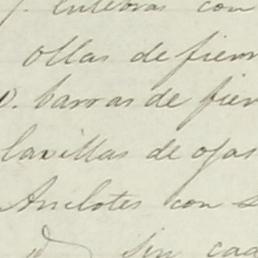 con
Ollas de fierr
barras de fier
lavillas de ojas
Anclotes con
sin cad